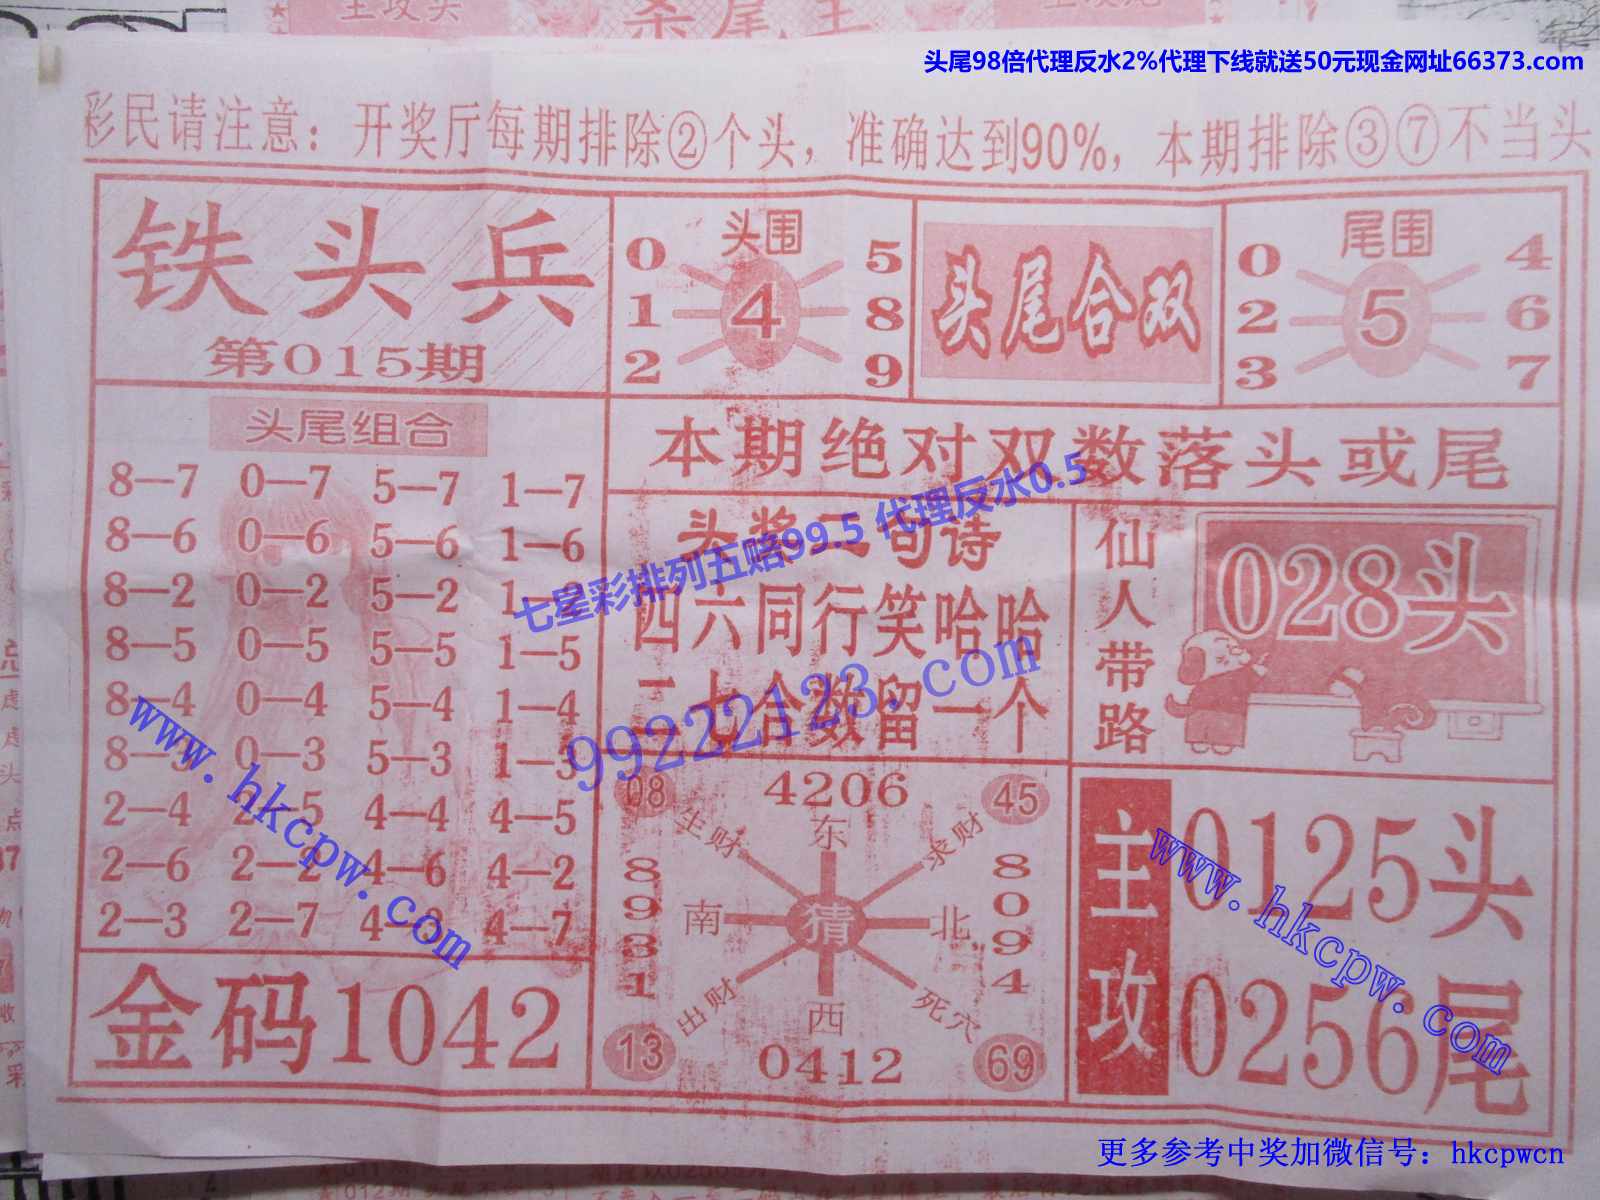 主攻头
杀尾王
头尾98倍代理反水2%代理下线就送50元现金网址66373.com
彩民请注意：开奖厅每期排除②个头，准确达到90%，本期排除③⑦不当头
铁头兵
第015期
头围
0 5
1 4 8
2 9
头尾合双
尾围
0 4
2 5 6
3 7
头尾组合
8—7 0—7 5—7 1—7
8—6 0—6 5—6 1—6
8—2 0—2 5—2 1—2
8—5 0—5 5—5 1—5
8—4 0—4 5—4 1—4
8—3 0—3 5—3 1—3
2—4 2—5 4—4 4—5
2—6 2—2 4—6 4—2
2—3 2—7 4—3 4—7
金码1042
本期绝对双数落头或尾
头奖二句诗
四六同行笑哈哈
二七合数留一个
七星彩排列五赔99.5 代理反水0.5
99222123.com
仙人带路
028头
08 4206 45
生财 东 求财
8931
南 猜 北
8094
出财 西 死穴
13 0412 69
主攻
0125头
0256尾
www.hkcpw.com
www.hkcpw.com
更多参考中奖加微信号：hkcpwcn